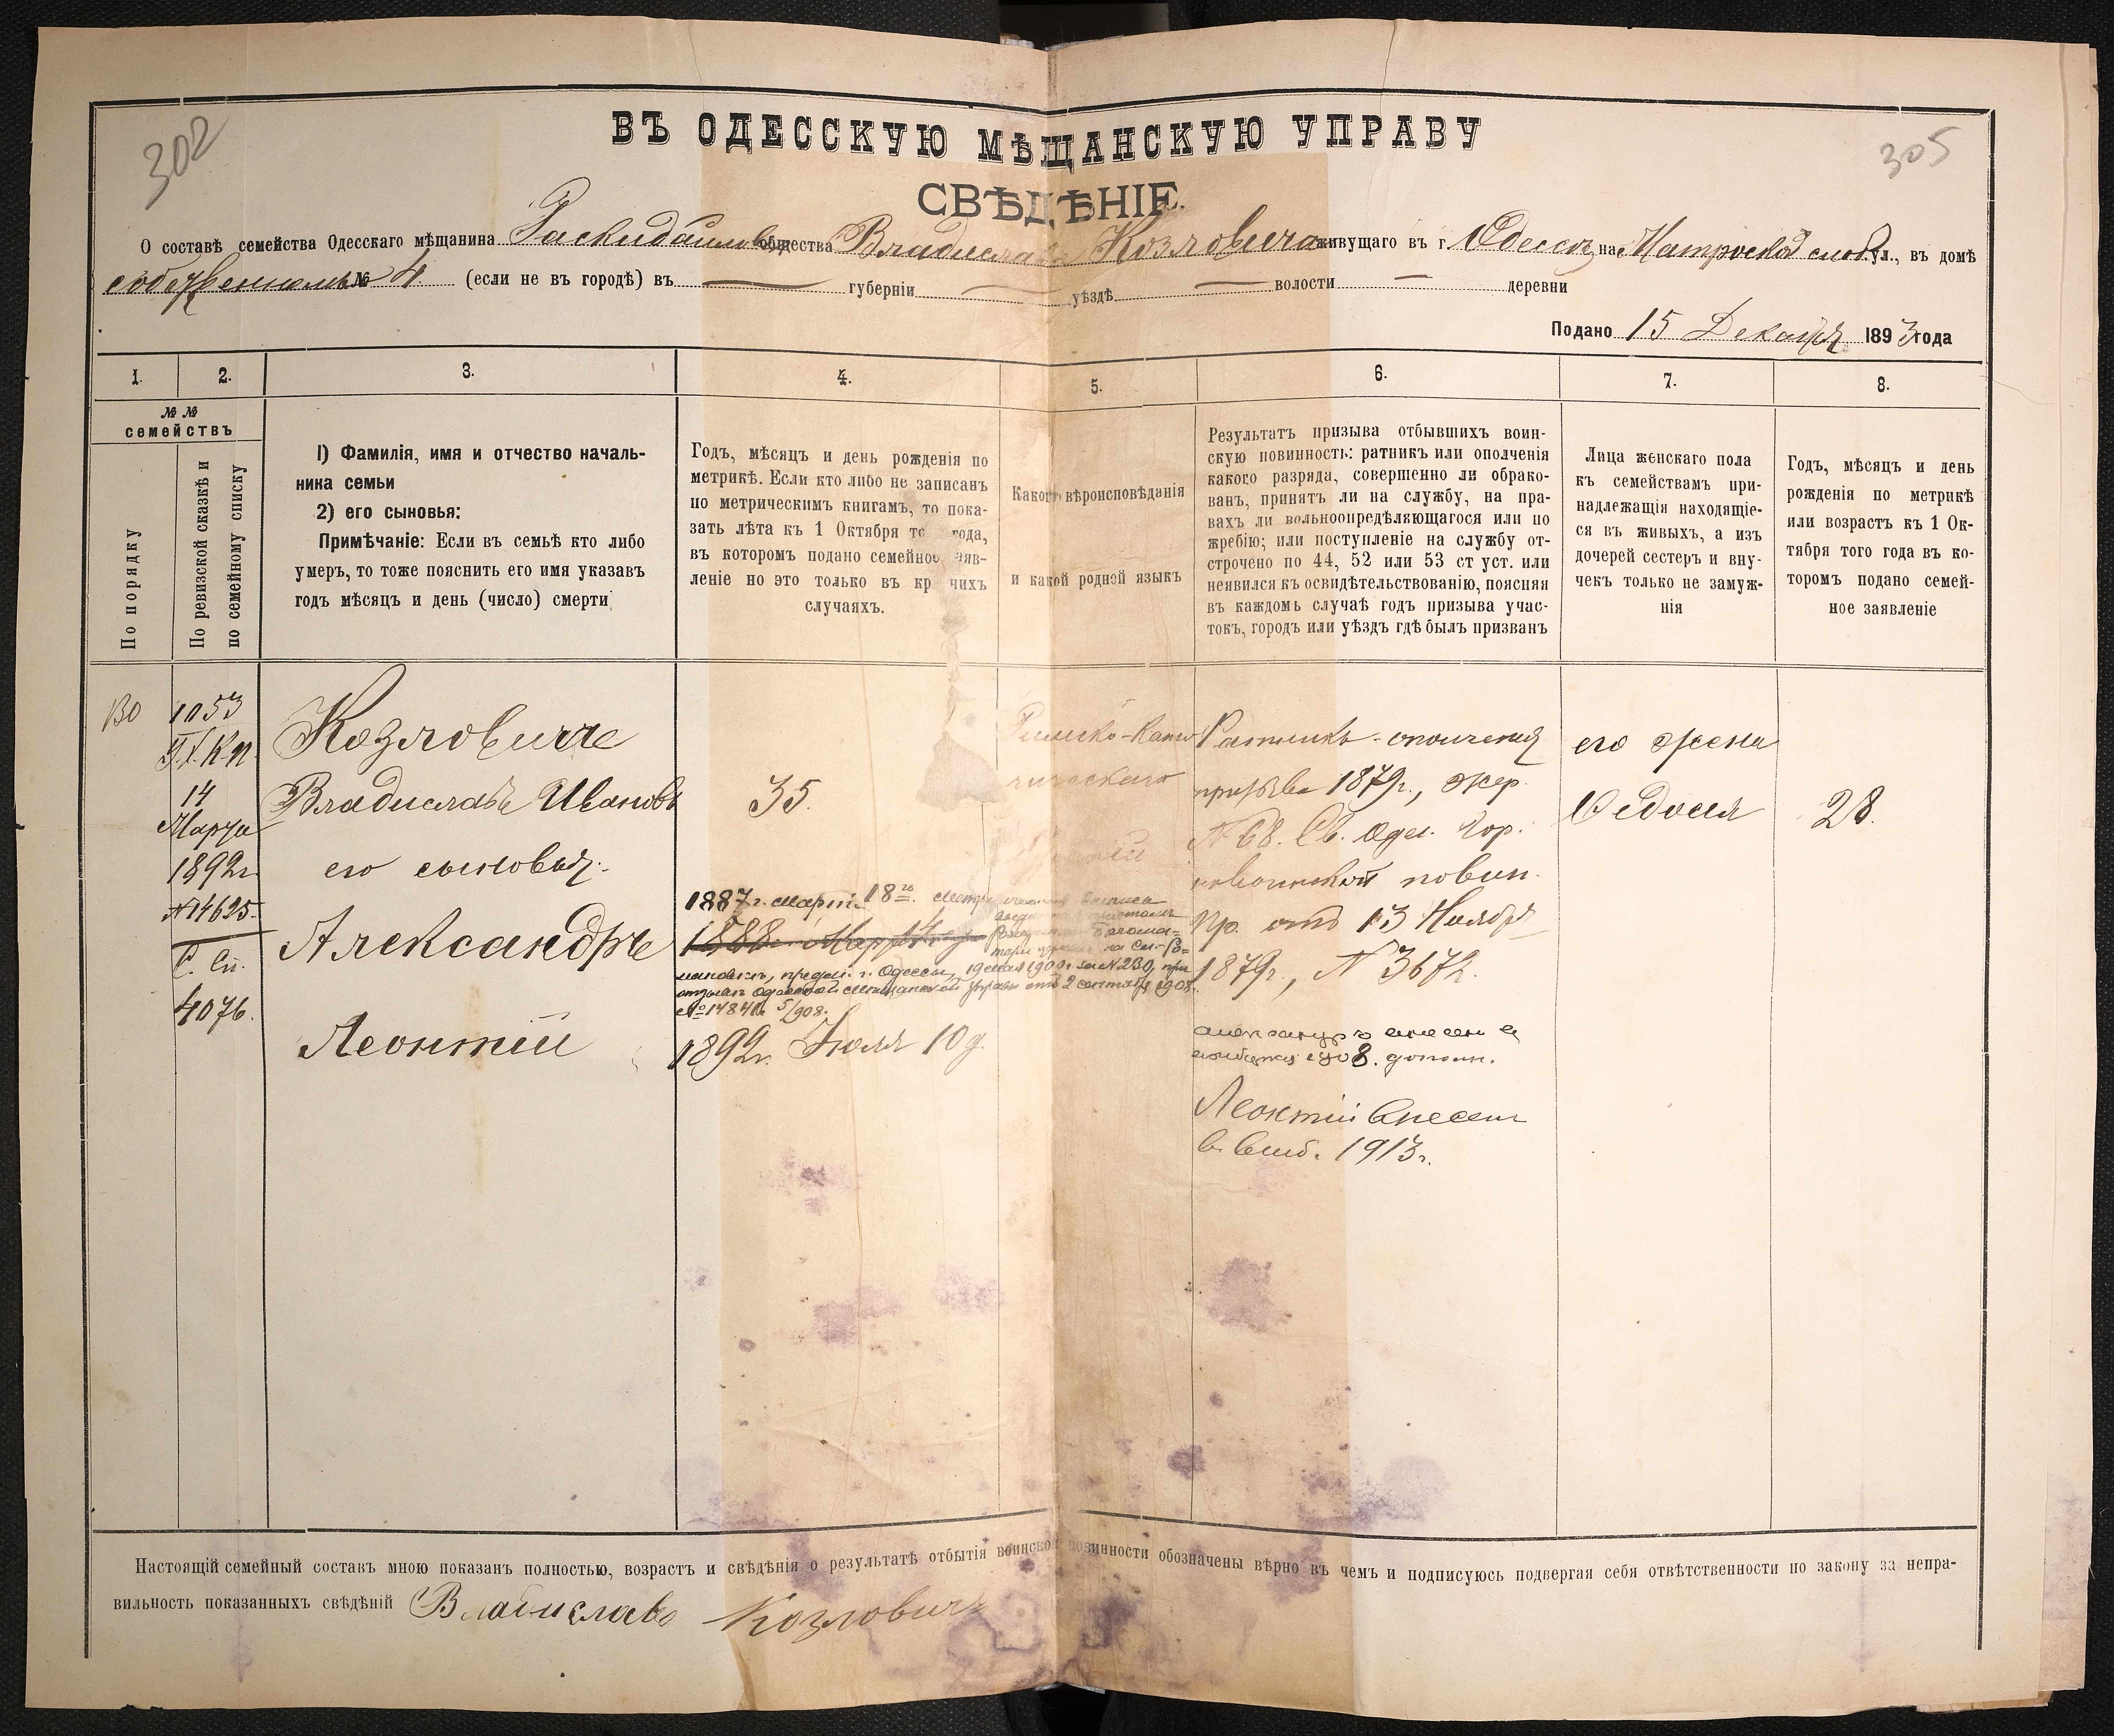 302
305
ВЪ ОДЕССКУЮ МѢЩАНСКУЮ УПРАВУ
СВѢДѢНІЕ.
О составѣ семейства Одесскаго мѣщанина Раскидайловск общества Владислава Козловича живущаго въ г. Одессѣ на Матросской слоб. ул., въ домѣ
собственномъ № 4. (если не въ городѣ) въ — губерніи — уѣздѣ — волости — деревни
Подано 15 Декабря 1893 года
1. 2. 3. 4. 5. 6. 7. 8.
№ №
семействъ
По порядку
По ревизской сказкѣ и
по семейному списку
1) Фамилія, имя и отчество началь-
ника семьи
2) его сыновья:
Примѣчаніе: Если въ семьѣ кто либо
умеръ, то тоже пояснить его имя указавъ
годъ мѣсяцъ и день (число) смерти
Годъ, мѣсяцъ и день рожденія по
метрикѣ. Если кто либо не записанъ
по метрическимъ книгамъ, то пока-
зать лѣта къ 1 Октября то года,
въ которомъ подано семейное заяв-
леніе но это только въ кр чихъ
случаяхъ.
Какого вѣроисповѣданія
и какой родной языкъ
Результатъ призыва отбывшихъ воин-
скую повинность: ратникъ или ополченія
какого разряда, совершенно ли обрако-
ванъ, принятъ ли на службу, на пра-
вахъ ли вольноопредѣляющагося или по
жребію; или поступленіе на службу от-
строчено по 44, 52 или 53 ст уст. или
неявился къ освидѣтельствованію, поясняя
въ каждомъ случаѣ годъ призыва учас-
токъ, городъ или уѣздъ гдѣ былъ призванъ
Лица женскаго пола
къ семействамъ при-
надлежащія находящіе-
ся въ живыхъ, а изъ
дочерей сестеръ и вну-
чекъ только не замуж-
нія
Годъ, мѣсяцъ и день
рожденія по метрикѣ
или возрастъ къ 1 Ок-
тября того года въ ко-
торомъ подано семей-
ное заявленіе
130
1053
14
Марта
1892г
№14625.
С. Сп.
4076.
Козловичъ
Владиславъ Ивановъ
его сыновья:
Александръ
Леонтій
35.
1887г. Марта 18го. Метрическая выписка
1888 Марта
мановкѣ, предм. г. Одессы, 19 мая 1900г за №230, при
отзывѣ Одесской Мещанской Управы отъ 2 сентября 1908г.
№14840. 5/908.
1892г. Іюля 10 д.
Римско-като
лическаго
Ратникъ ополченія
призыва 1879г., жер.
№68. Св. Одес. Гор.
повоинской повин.
Пр. отъ 13 Ноября
1879г., №3672.
Александръ внесенъ въ
1908. дополн.
Леонтій внесенъ
в. 1913г.
его жена
Федосія
28.
Настоящій семейный составъ мною показанъ полностью, возрастъ и свѣдѣнія о результатѣ отбытія воинской повинности обозначены вѣрно въ чемъ и подписуюсь подвергая себя отвѣтственности по закону за непра-
вильность показанныхъ свѣдѣній Владиславъ Козловичъ